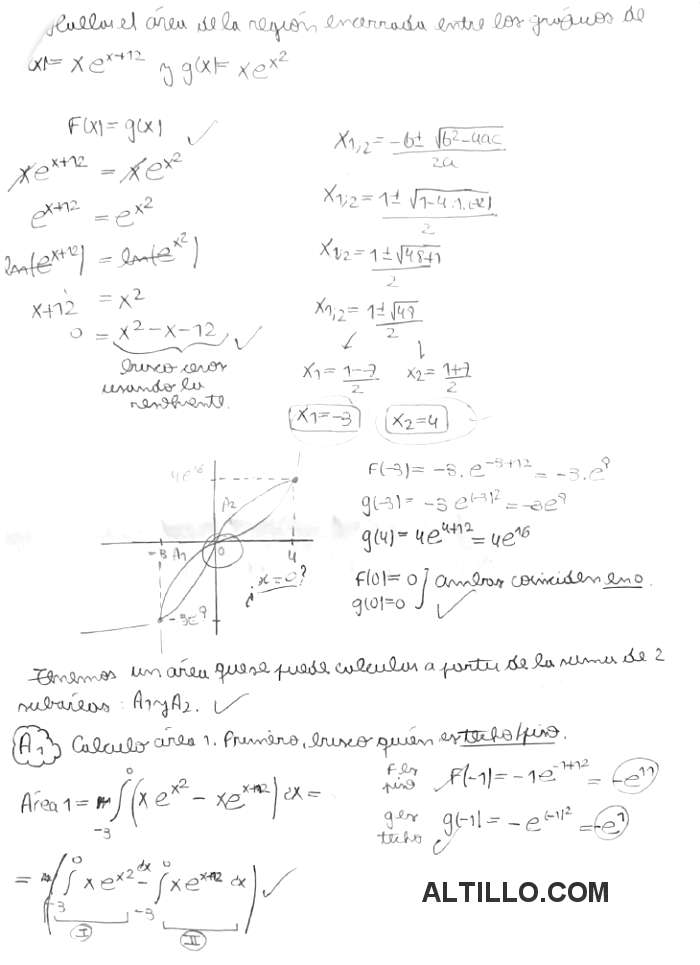 Hallar el área de la región encerrada entre los gráficos de
f(x)= x e^{x+12} y g(x)= x e^{x^2}
F(x) = g(x)
x e^{x+12} = x e^{x^2}
e^{x+12} = e^{x^2}
ln(e^{x+12}) = ln(e^{x^2})
x+12 = x^2
0 = x^2 - x - 12
busco ceros
usando la
resolvente.
X1,2 = -b ± √(b^2-4ac) / 2a
X1,2 = 1 ± √(1-4.1.(-12)) / 2
X1,2 = 1 ± √(48+1) / 2
X1,2 = 1 ± √49 / 2
X1 = 1-7 / 2 X2 = 1+7 / 2
X1=-3 X2=4
4e^16
A2
-3 A1 0 4
¿x=0?
-3e^9
F(-3) = -3. e^{-3+12} = -3.e^9
g(-3) = -3 e^{(-3)^2} = -3e^9
g(4) = 4e^{4+12} = 4e^16
F(0) = 0
g(0)=0 } ambas coinciden en 0.
Tenemos un área que se puede calcular a partir de la suma de 2
subáreas: A1 y A2.
A1 Calculo área 1. Primero, busco quién es techo/piso.
Área 1 = ∫_{-3}^{0} (x e^{x^2} - x e^{x+12}) dx =
F es piso F(-1) = -1e^{-1+12} = -e^11
g es techo g(-1) = -e^{(-1)^2} = -e^1
= (∫_{-3}^{0} x e^{x^2} dx - ∫_{-3}^{0} x e^{x+12} dx)
I II
ALTILLO.COM